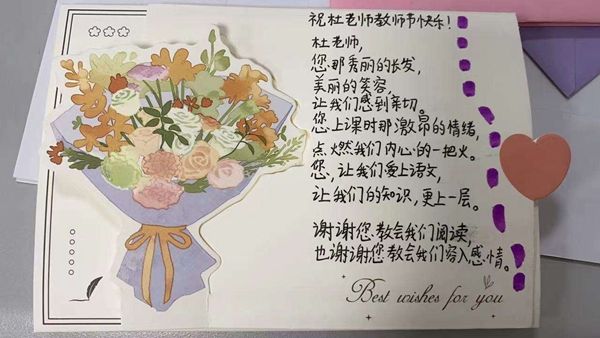 祝杜老师教师节快乐！
杜老师，
您那秀丽的长发，
美丽的笑容，
让我们感到亲切。
您上课时那激昂的情绪，
点燃我们内心的一把火。
您，让我们爱上语文，
让我们的知识，更上一层。
谢谢您教会我们阅读，
也谢谢您教会我们穷入感情。
Best wishes for you